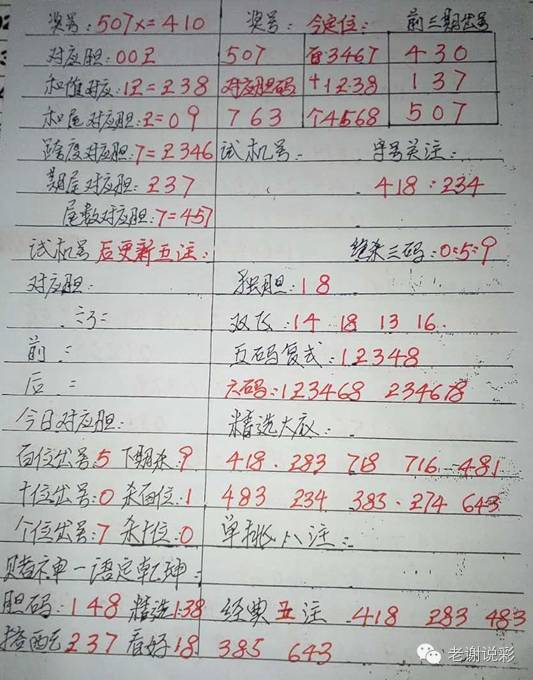 奖号:507x=410 奖号: 今定位: 前三期出号
对应胆:002 507 百:3467 430
和值对应:12=238 对应胆码 十1238 137
和尾对应胆:2=09 763 个4568 507
跨度对应胆:7=2346 试机号: 字号关注:
期尾对应胆:237 418:234
尾数对应胆:7=457
试机号后更新五注: 绝杀三码:0:5:9
对应胆: 独胆:18
双飞:14 18 13 16
前 = 五码复式:12348
后 = 六码:123468 234678
今日对应胆: 精选大底:
百位出号:5 下期杀:9 418. 283 718 716 481
十位出号:0 杀百位:1 483 234 383. 274 643
个位出号:7 杀十位:0 单挑八注:
赌神一语定乾坤:
胆码:148 精选138 经典五注 418 283 483
搭配237 看好18 385 643
老谢说彩